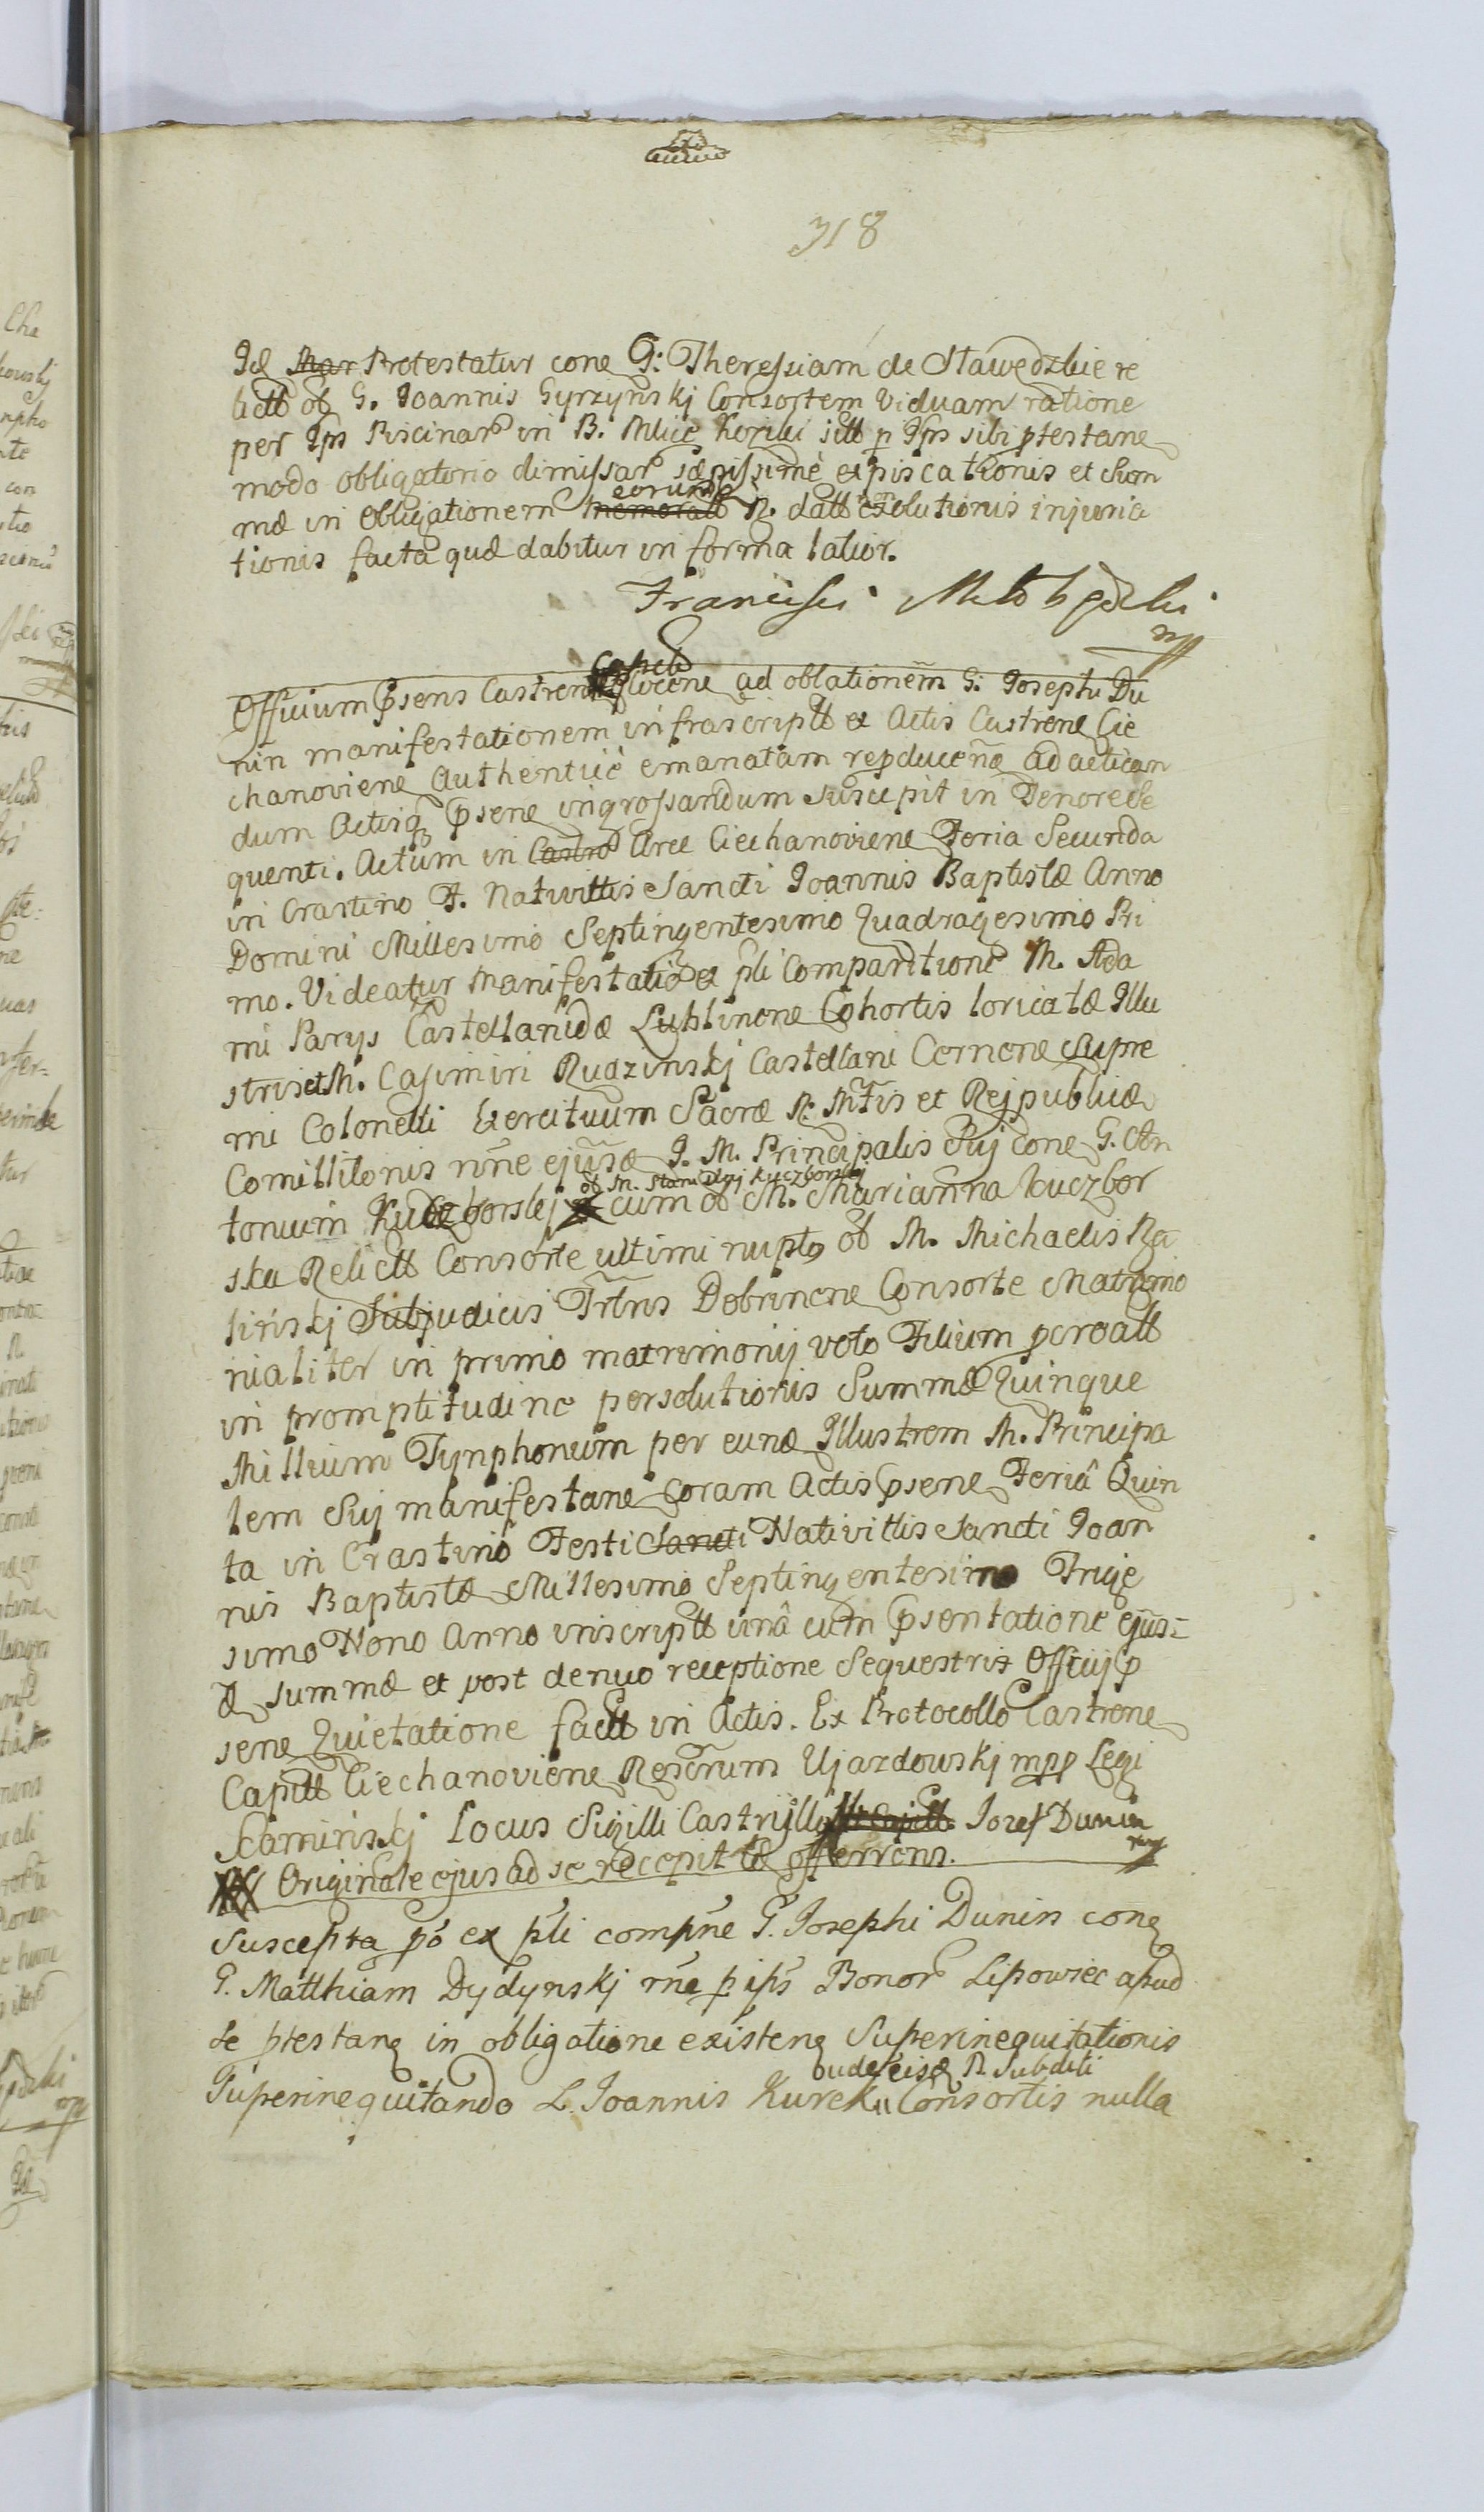 318
Id Mar Protestatur cone G: Theressiam de Stawedzkie re
lictt olg G. Joannis Gyrzynskj Consortem Viduam ratione
per Ips Piscinar in B. Mlice Koziki sitt p Ips sibi ptestane
modo obligatorio dimissar sæpissimè expiscationis et Sum
mæ in obligationem memoratt eorund R. datt non exolutionis injuria
tionis facta quæ dabitur in forma latior.
Officium Psens Castren Capeld ad oblationem G: Josephi Du
nin manifestationem infrascriptt ex Actis Castrene Cie
chanoviene Authenticè emanatam reproducenæ ad actican
dum Actisq Psene ingrossandum suscepit in Tenore se
quenti. Actum in Castro Arce Ciechanoviene Feria Secunda
in Crastino F. Nativittis Sancti Joannis Baptistæ Anno
Domini Millesimo Septingentesimo Quadragesimo Pri
mo. Videatur Manifestatio ex pli Comparitione M. Ada
mi Parys Castellanidæ Lublinene Cohortis loricatæ Illu
stris et M. Casimiri Rudzinskj Castellani Cernene Supre
mi Colonelli Exercituum Sacræ R. Mttis et Rejpublicæ
Comillitonis nne ejusd I. M. Principalis Suj cone G. An
tonium Kuczborskj ob M. Stanislaj Kuczborskj cum ob M. Marianna Kuczbor
ska Relictt Consorte ultimi nupta ob M. Michaelis Ra
linskj Subjudicis Trtris Dobrinene Consorte Matrimo
nialiter in primo matrimonij voto Filium pcroatt
in promptitudine persolutionis Summæ Quinque
Millium Tynphonum per eunæ Illustrem M. Principa
lem Suj manifestane coram Actis Psene Feriâ Quin
ta in Crastino Festi Sancti Nativittis Sancti Joan
nis Baptistæ Millesimo Septingentesimo Trige
simo Nono Anno inscriptt unâ cum Psentatione ejus=
d summæ et post denuo receptione Sequestris Officij P
sene Quietatione factt in Actis. Ex Protocollo Castrene
Capitt Ciechanoviene Rescrum Ujazdowskj mpp Legi
Kaminskj Locus Sigilli Castri Jozef Dunin
Originale ejus ad se recepit td offerrens.
Suscepta po ex pli compne G. Josephi Dunin cone
G. Matthiam Dydynskj rne p ips Bonor Lipowiec apud
se ptestane in obligatione existene Superinequitationis
Superinequitando L. Joannis Kurek Consortis nulla